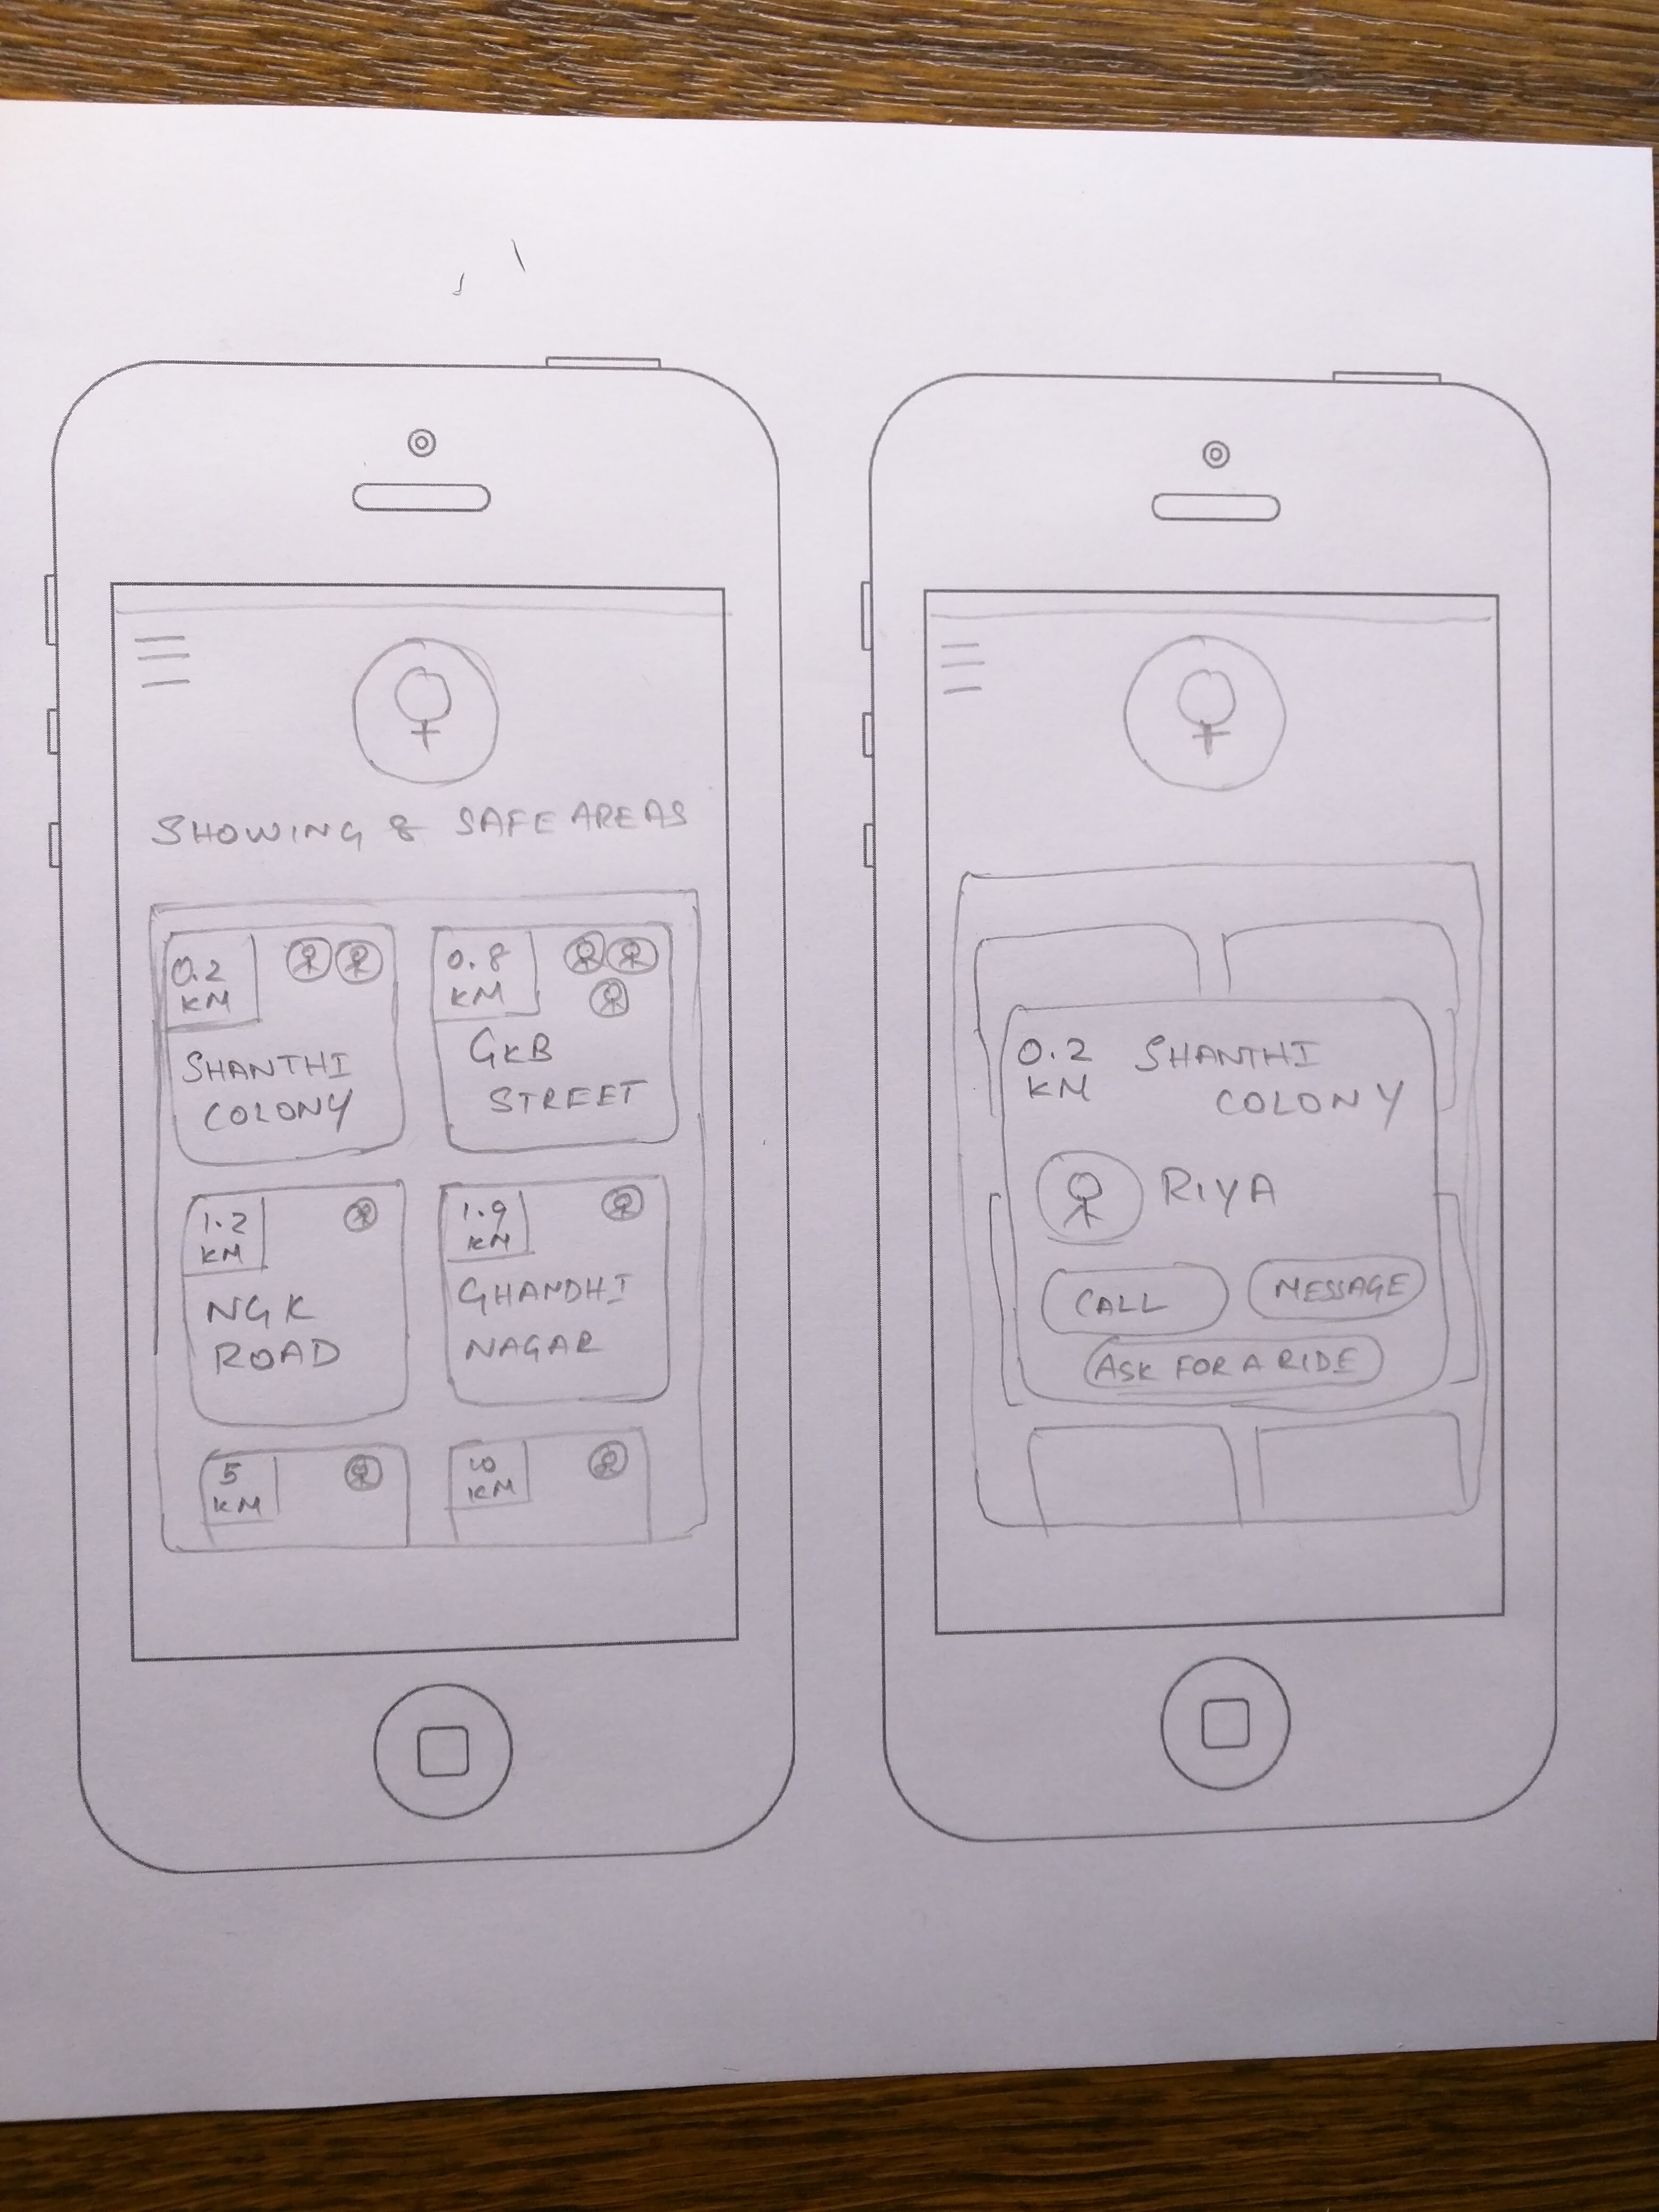 SHOWING 8 SAFE AREAS
0.2
KM
SHANTHI
COLONY
0.8
KM
GKB
STREET
1.2
KM
NGK
ROAD
1.9
KM
GHANDHI
NAGAR
5
KM
10
KM
0.2
KM
SHANTHI
COLONY
RIYA
CALL
MESSAGE
ASK FOR A RIDE